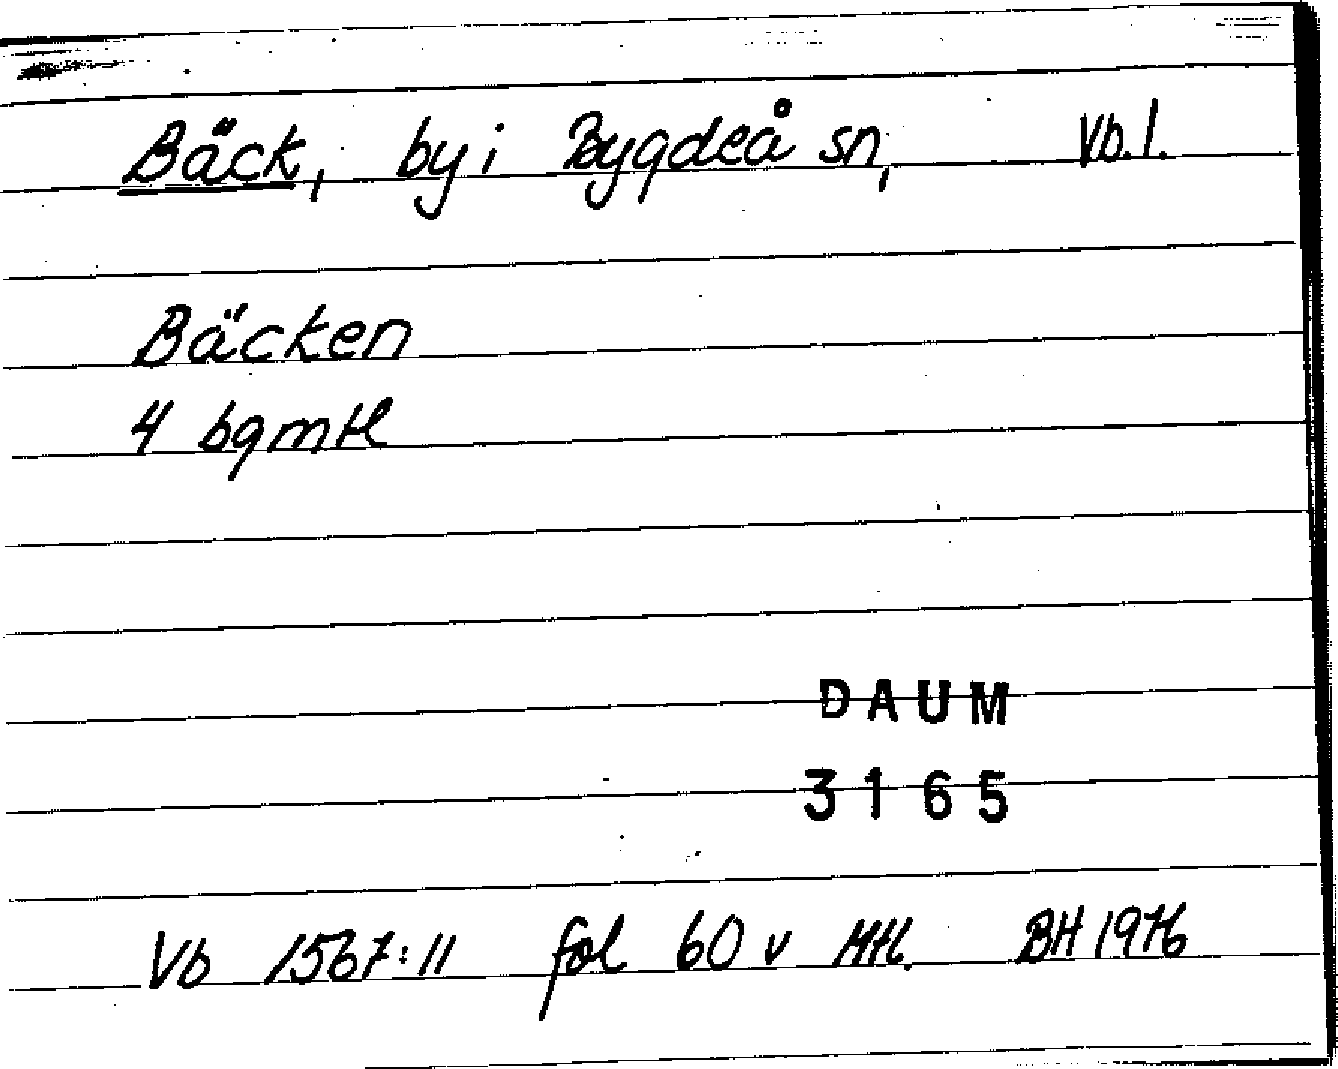 Bäck, by i Bygdeå sn, Vb. l.
Bäcken
4 bgmtl
DAUM
3165
Vb 1567:11 fol 60 v Mtl. BH 1976